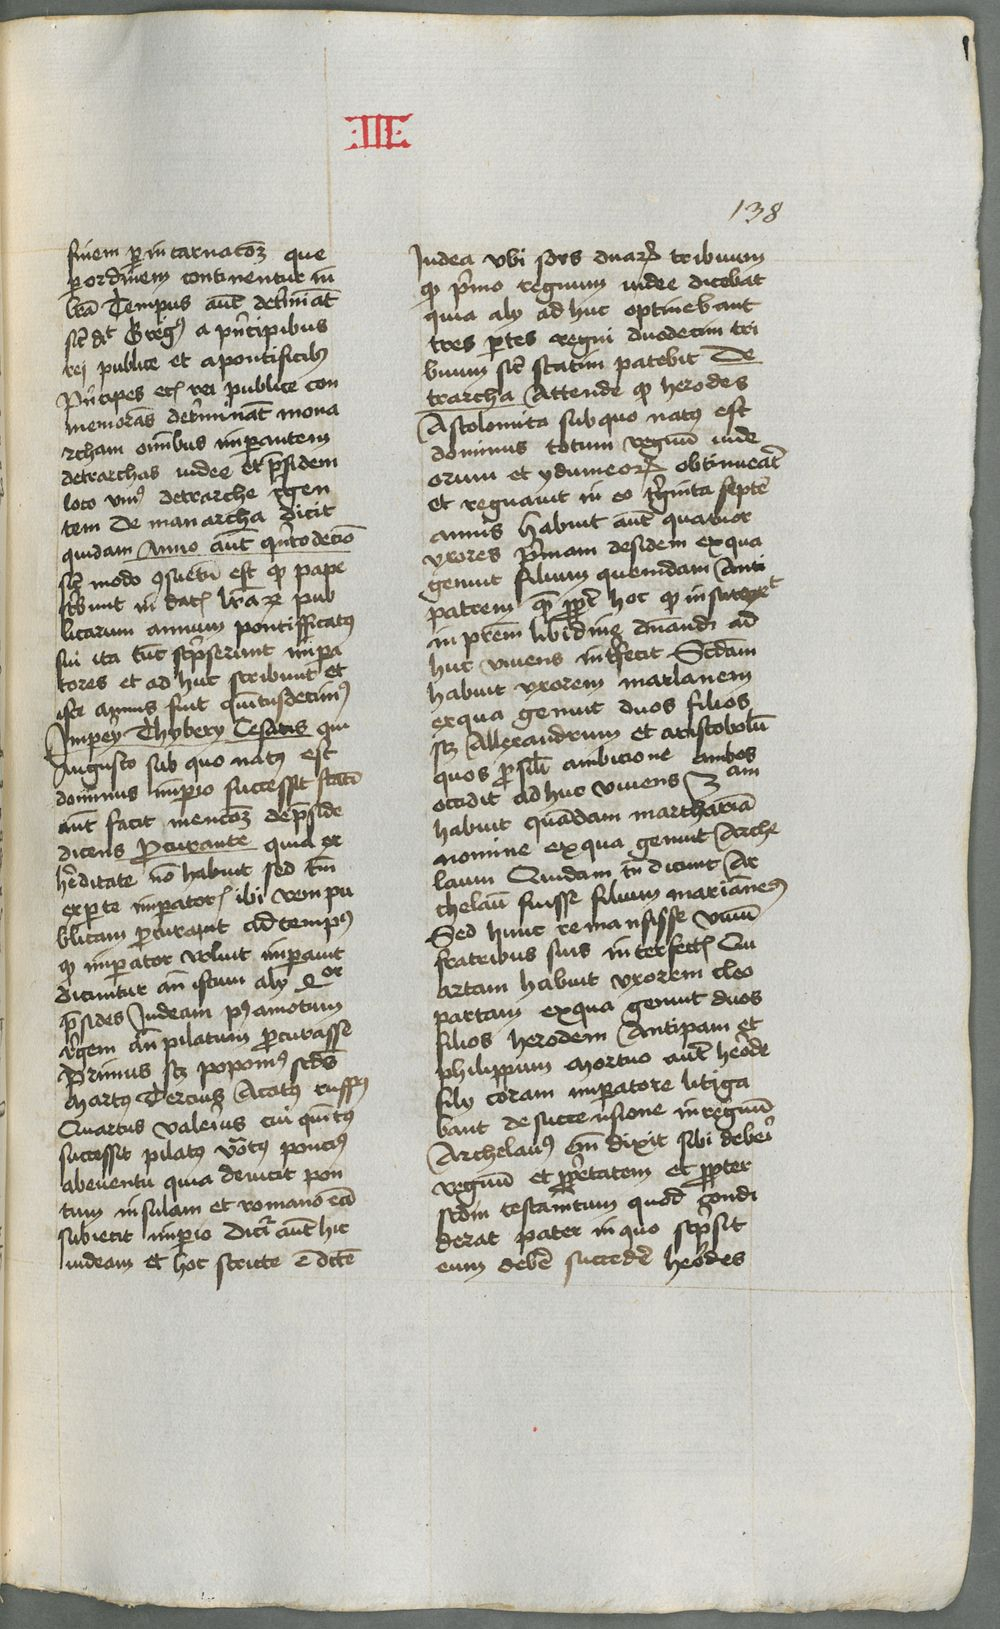 III
138
finem per incarnacōꝫ que
per ordinem continentur in
lrā Tempus aut̄ determīat
sic̄ dt̄ Gregꝰ a prīcipibus
rei publice et a pontificibꝰ
Prīcipes eī rei publice con
memorās determinat mona
rcham omībus imperantem
detrarchas iudee et presidem
loco vniꝰ detrarche regen
tem De manarcha dicit
quidam Anno aut̄ quītodecīo
sic̄ modo ꝯsuetū est ꝙ pape
scribunt in dat lrāꝝ pub
licarum annum pontifficatꝰ
sui ita tūc scripserunt impa
tores et ad huc scribunt et
iste annus fuit quītusdecimꝰ
Impery Thybery Cesaris qui
Augusto sub quo natꝰ est
dominus imperio successit statī
aut̄ facit mencōꝫ de preside
dicens Procurante quia ex
hereditate nō habuit sed tm̄
ex parte imperatoris ibi rem pu
blicam procurauit ad tempꝰ
ꝙ imperator voluit imperauit
Dicuntur an̄ istum aly
presides Iudeam pꝰ amotum
regem an̄ pilatum procurasse
Primus scꝫ poponiꝰ scd̄s
Martꝰ Tercius Acotꝰ ruffꝰ
Quartus valerius cui quītꝰ
successit pilatꝰ vocatꝰ ponciꝰ
ab euentu quia deuicit pon
tum insulam et romano eā
subiecit imperio Dicit aut̄ hic
iudeam et hoc stricte
Iudea vbi sors duaꝝ tribuum
ꝙ primo regnum iudee dicebat
quia aly ad huc optinebant
tres partes regni duodecim tri
buum sic̄ statim patebit De
trarcha Attende ꝙ herodes
Ascolonita sub quo natꝰ est
dominus totum regnū iude
orum et ydumeoꝝ obtinuerat
et regnauit in eo triginta septē
annis Habuit aut̄ quatuor
vxores primam desidem ex qua
genuit filium quemdam Anti
patrem quē propter hoc ꝙ insurrexit
in prēm libidine dn̄andi ad
huc viuens interfecit Secūdam
habuit vxorem marianem
ex qua genuit duos filios
scꝫ Allexandrum et aristobolū
quos pro simili ambicione ambos
occidit ad huc viuens 3am
habuit quādam martharīā
nomine ex qua genuit Arche
laum Quidam tn̄ dicunt Ar
chelaū fuisse filium marianeꝰ
Sed hunc remansisse viuū
fratribus suis interfectis Qu
artam habuit vxorem cleo
patram ex qua genuit duos
filios herodem Antipam et
philippum Mortuo aut̄ herode
fily coram imperatore litiga
bant de successione in regnū
Archelauꝰ em̄ dixit sibi deberi
regnū et propter etatem et propter
scd̄m testamētum quod condi
derat pater in quo scripsit
eum debere succedere herodes